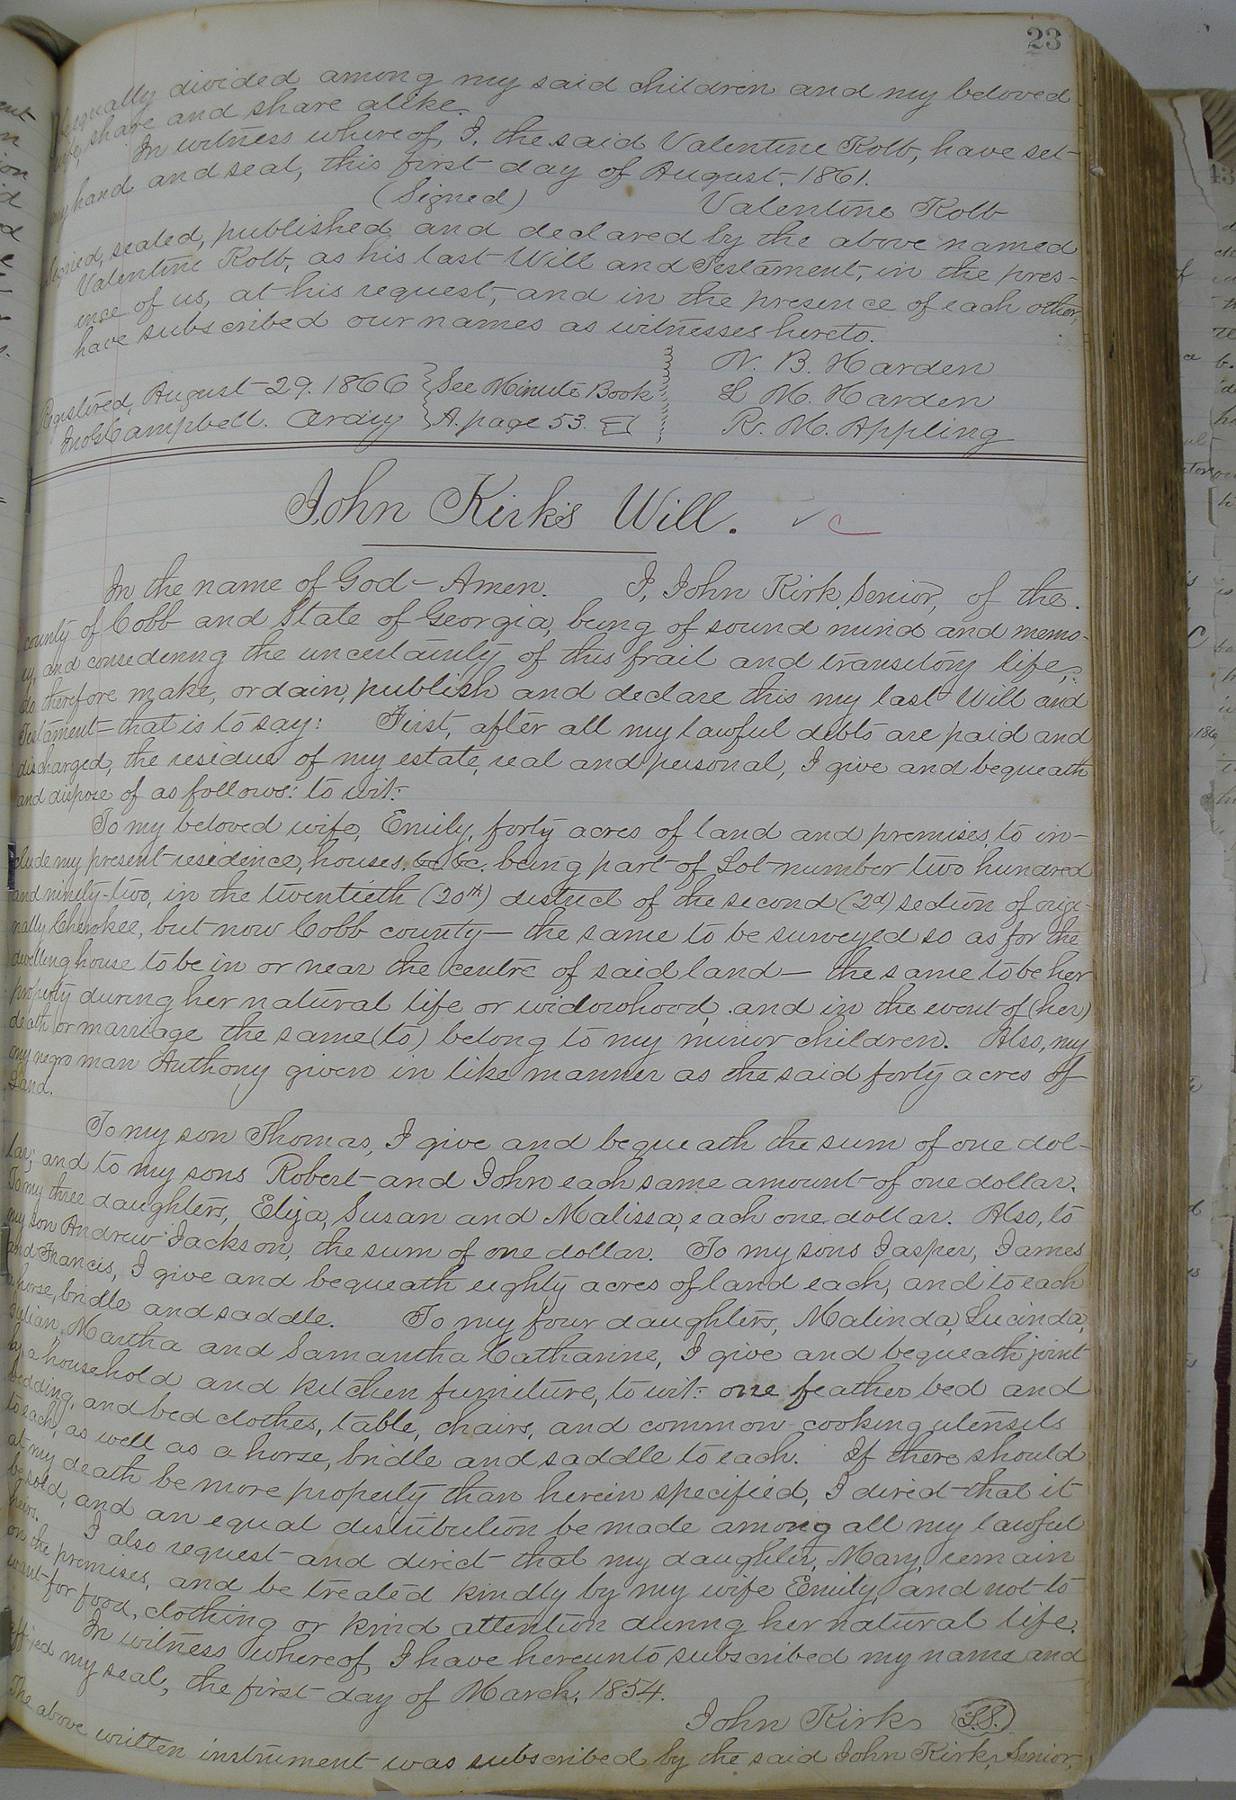 23
equally divided among my said children and my beloved
wife, share and share alike.
In witness whereof, I, the said Valentine Kolb, have set
my hand and seal, this first day of August, 1861.
(Signed) Valentine Kolb
Signed, sealed, published and declared by the above named
Valentine Kolb, as his last Will and Testament, in the pres-
ence of us, at his request, and in the presence of each other,
have subscribed our names as witnesses hereto.
N. B. Harden
Registered, August 29. 1866 See Minute Book
L M. Harden
Jno G Campbell. Ordiy A. page 53.
R. M. Appling
John Kirk's Will.
In the name of God - Amen. I, John Kirk, Senior, of the
county of Cobb and State of Georgia, being of sound mind and memo-
ry, and consedering the uncertainty of this frail and transitory life,
do therefore make, ordain, publish and declare this my last Will and
Testament - that is to say: First, after all my lawful debts are paid and
discharged, the residue of my estate, real and personal, I give and bequeath
and dispose of as follows: to wit:
To my beloved wife, Emily, forty acres of land and premises, to in-
clude my present residence, houses, &c &c. being part of Lot number two hundred
and ninety-two, in the twentieth (20th) district of the second (2d) section of origi-
nally Cherokee, but now Cobb county - the same to be surveyed so as for the
dwelling house to be in or near the centre of said land - the same to be her
property during her natural life or widowhood, and in the event of (her)
death or marriage the same (to) belong to my minor children. Also, my
my negro man Anthony given in like manner as the said forty acres of
Land.
To my son Thomas, I give and bequeath the sum of one dol-
lar; and to my sons Robert and John each same amount of one dollar.
To my three daughters, Eliza, Susan and Malissa, each one dollar. Also, to
my son Andrew Jackson, the sum of one dollar. To my sons Jasper, James
and Francis, I give and bequeath eighty acres of land each, and to each
a horse, bridle and saddle. To my four daughters, Malinda, Lucinda,
Martha and Samantha Catharine, I give and bequeath joint
ly a household and kitchen furniture, to wit: one feather bed and
bedding, and bed clothes, table, chairs, and common cooking utensils
to each, as well as a horse, bridle and saddle to each. If there should
at my death be more property than herein specified, I direct that it
be sold, and an equal distribution be made among all my lawful
heirs. I also request and direct that my daughter, Mary, remain
on the premises, and be treated kindly by my wife Emily, and not to
want for food, clothing or kind attention during her natural life.
In witness whereof, I have hereunto subscribed my name and
affixed my seal, the first day of March, 1854.
John Kirk L.S.
The above written instrument was subscribed by the said John Kirk, Senior,